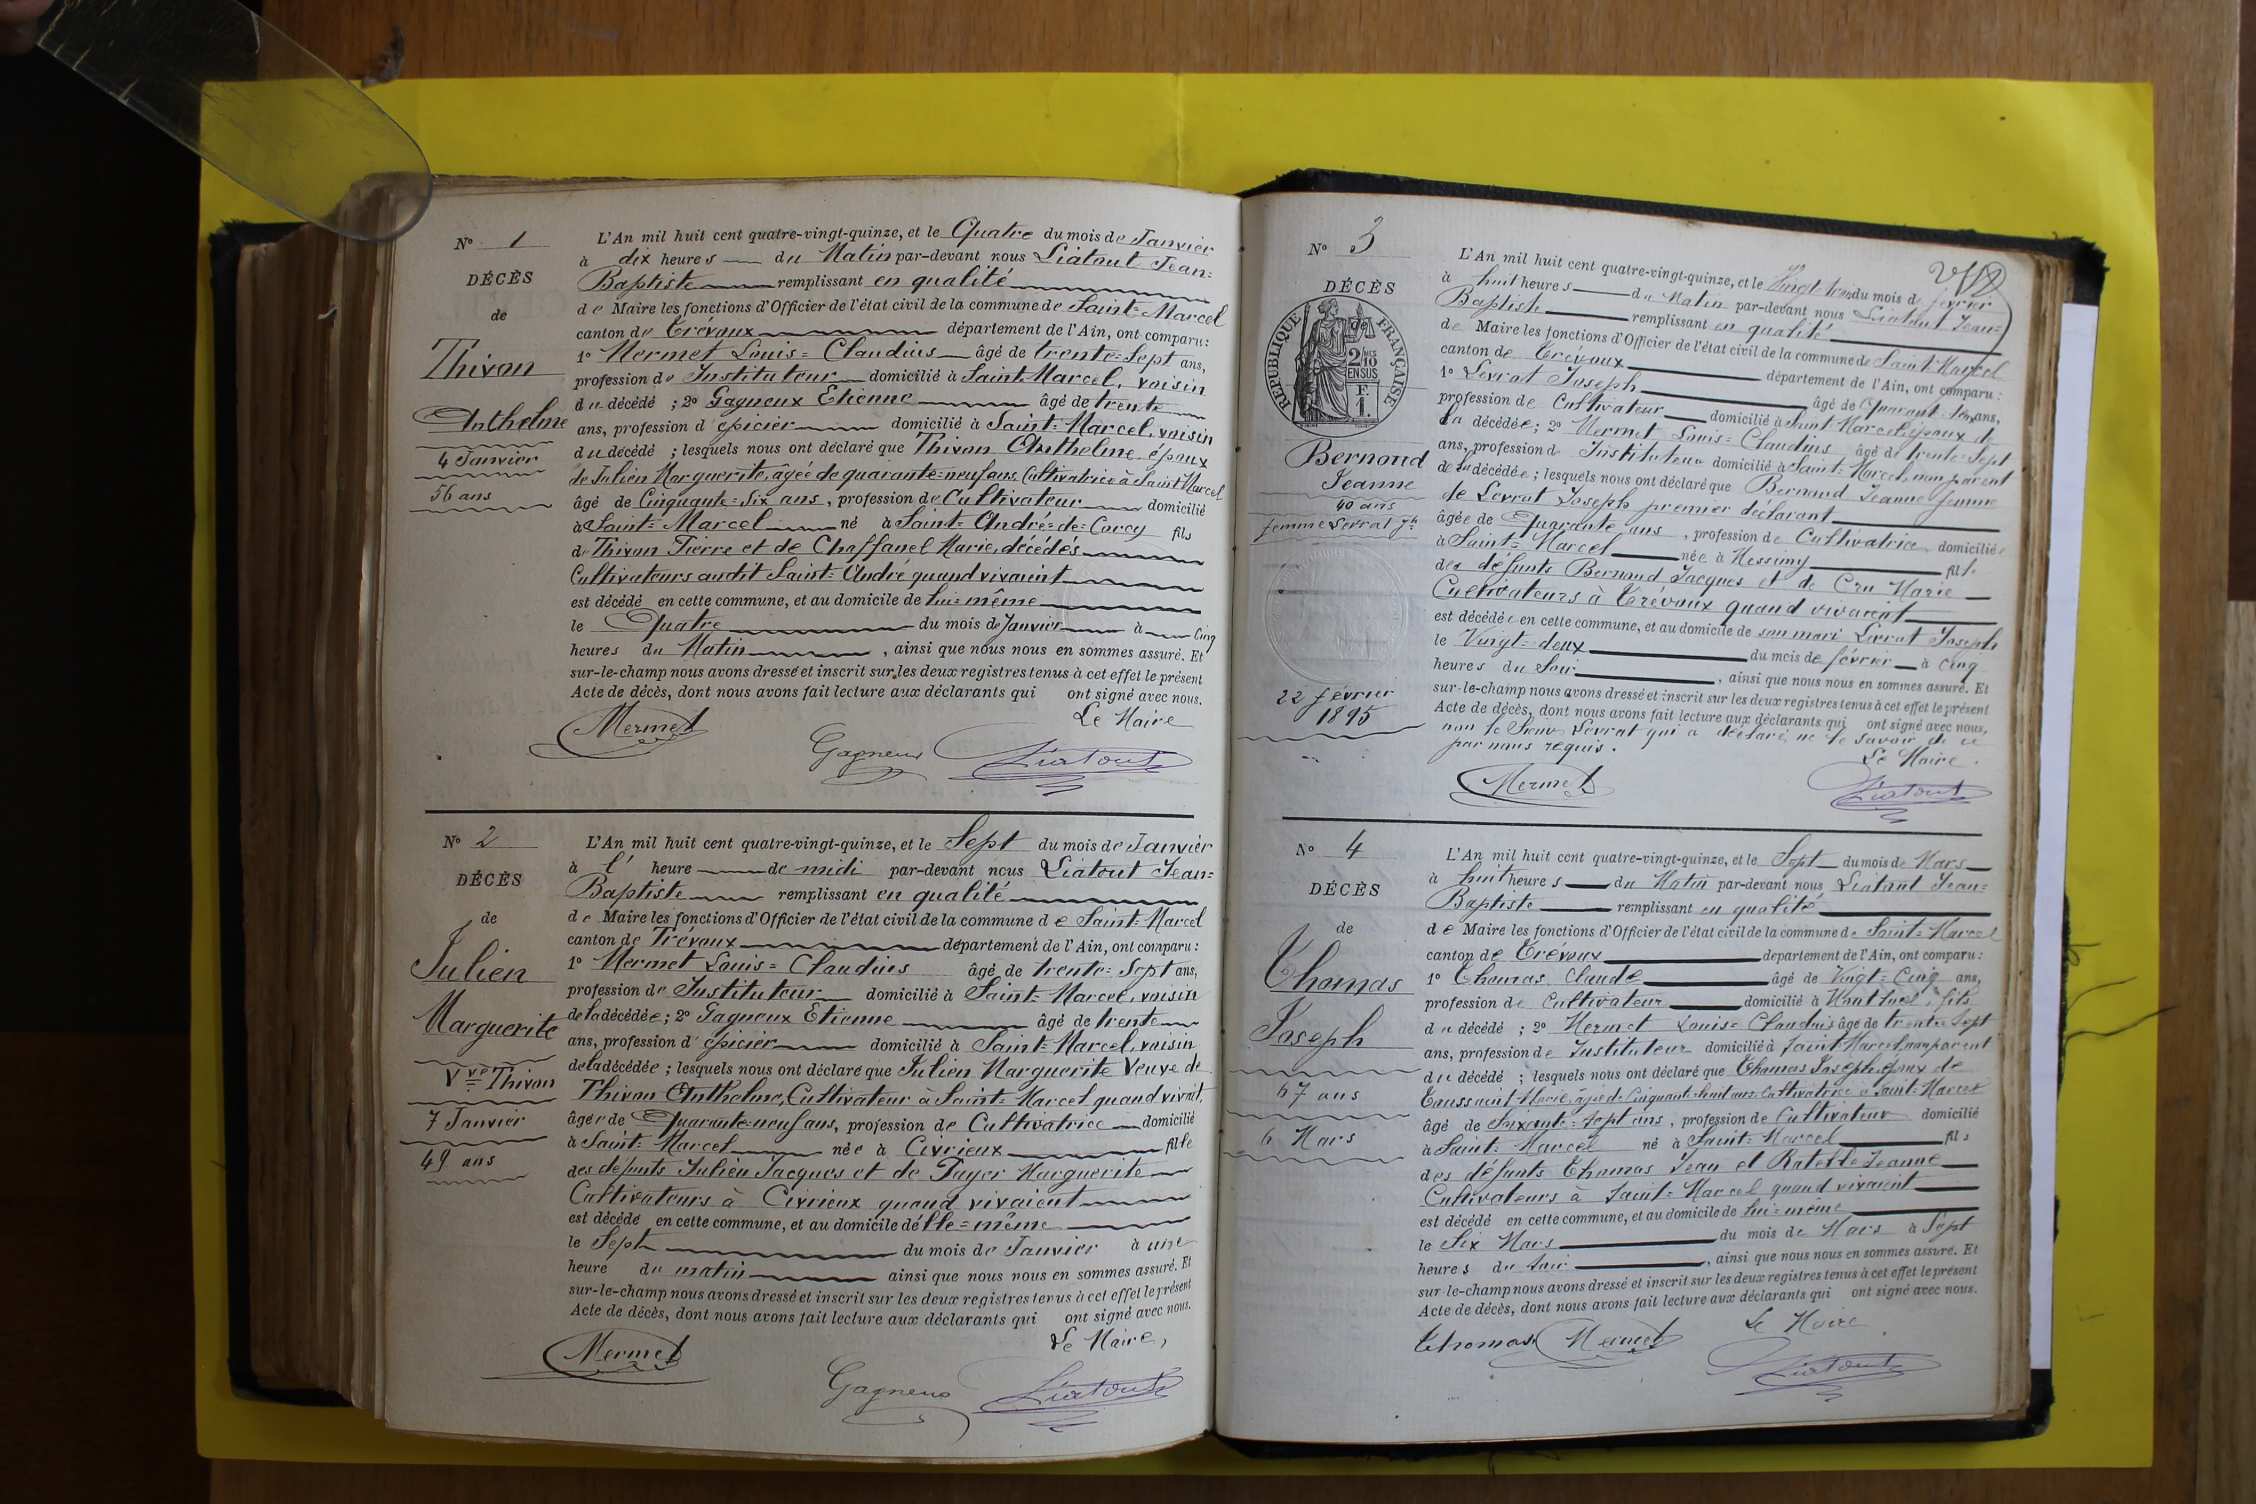 N° 1
DÉCÈS
de
Thivon
Anthelme
4 Janvier
56 ans
L'An mil huit cent quatre-vingt-quinze, et le Quatre du mois de Janvier
à dix heures du Matin par-devant nous Liatout Jean=
Baptiste remplissant en qualité
de Maire les fonctions d'Officier de l'état civil de la commune de Saint=Marcel
canton de Trévoux département de l'Ain, ont comparu:
1° Mermet Louis=Claudius âgé de trente=sept ans,
profession de Instituteur domicilié à Saint=Marcel, voisin
du décédé ; 2° Gagneux Etienne âgé de trente
ans, profession d'épicier domicilié à Saint=Marcel, voisin
du décédé ; lesquels nous ont déclaré que Thivon Anthelme époux
de Julien Marguerite, âgée de quarante=neuf ans Cultivatrice à Saint Marcel
âgé de Cinquante=Six ans, profession de Cultivateur domicilié
à Saint=Marcel né à Saint=André=de=Corcy fils
de Thivon Pierre et de Chaffanel Marie, décédés
Cultivateurs audit Saint=André quand vivaient
est décédé en cette commune, et au domicile de lui=même
le Quatre du mois de Janvier à Cinq
heures du Matin, ainsi que nous nous en sommes assuré. Et
sur-le-champ nous avons dressé et inscrit sur les deux registres tenus à cet effet le présent
Acte de décès, dont nous avons fait lecture aux déclarants qui ont signé avec nous.
Le Maire
Mermet Gagneux Liatout
N° 2
DÉCÈS
de
Julien
Marguerite
Vve Thivon
7 Janvier
49 ans
L'An mil huit cent quatre-vingt-quinze, et le Sept du mois de Janvier
à l' heure de midi par-devant nous Liatout Jean=
Baptiste remplissant en qualité
de Maire les fonctions d'Officier de l'état civil de la commune de Saint=Marcel
canton de Trévoux département de l'Ain, ont comparu:
1° Mermet Louis=Claudius âgé de trente=Sept ans,
profession de Instituteur domicilié à Saint=Marcel, voisin
de la décédée; 2° Gagneux Etienne âgé de trente
ans, profession d'épicier domicilié à Saint=Marcel, voisin
de la décédée ; lesquels nous ont déclaré que Julien Marguerite Veuve de
Thivon Anthelme, Cultivateur à Saint=Marcel quand vivait,
âgée de Quarante=neuf ans, profession de Cultivatrice domicilié
à Saint=Marcel née à Civrieux fille
des défunts Julien Jacques et de Payer Marguerite
Cultivateurs à Civrieux quand vivaient
est décédé en cette commune, et au domicile d'elle=même
le Sept du mois de Janvier à une
heure du matin ainsi que nous nous en sommes assuré. Et
sur-le-champ nous avons dressé et inscrit sur les deux registres tenus à cet effet le présent
Acte de décès, dont nous avons fait lecture aux déclarants qui ont signé avec nous.
Le Maire,
Mermet Gagneux Liatout
N° 3
DÉCÈS
de
RÉPUBLIQUE FRANÇAISE
2/10 EN SUS
F. 1.
Bernoud
Jeanne
40 ans
femme Levrat Jh
22 février
1895
L'An mil huit cent quatre-vingt-quinze, et le Vingt trois du mois de février
à huit heures du Matin par-devant nous Liatout Jean=
Baptiste remplissant en qualité
de Maire les fonctions d'Officier de l'état civil de la commune de Saint Marcel
canton de Trévoux département de l'Ain, ont comparu:
1° Levrat Joseph âgé de Quarante ans,
profession de Cultivateur domicilié à Saint Marcel époux de
la décédée; 2° Mermet Louis=Claudius âgé de trente=Sept
ans, profession de Instituteur domicilié à Saint=Marcel, non parent
de la décédée; lesquels nous ont déclaré que Bernoud Jeanne femme
de Levrat Joseph premier déclarant
âgée de Quarante ans, profession de Cultivatrice domiciliée
à Saint=Marcel née à Messimy fille
des défunts Bernoud Jacques et de Cru Marie
Cultivateurs à Trévoux quand vivaient
est décédée en cette commune, et au domicile de son mari Levrat Joseph
le Vingt=deux du mois de février à cinq
heures du Soir, ainsi que nous nous en sommes assuré. Et
sur-le-champ nous avons dressé et inscrit sur les deux registres tenus à cet effet le présent
Acte de décès, dont nous avons fait lecture aux déclarants qui ont signé avec nous,
non le Sieur Levrat qui a déclaré ne le savoir de ce
par nous requis.
Le Maire.
Mermet Liatout
N° 4
DÉCÈS
de
Thomas
Joseph
67 ans
6 Mars
L'An mil huit cent quatre-vingt-quinze, et le Sept du mois de Mars
à huit heures du Matin par-devant nous Liatout Jean=
Baptiste remplissant en qualité
de Maire les fonctions d'Officier de l'état civil de la commune de Saint=Marcel
canton de Trévoux département de l'Ain, ont comparu:
1° Thomas Claude âgé de Vingt=Cinq ans,
profession de Cultivateur domicilié à fils
du décédé ; 2° Mermet Louis=Claudius âgé de trente=Sept
ans, profession de Instituteur domicilié à Saint=Marcel, non parent
du décédé ; lesquels nous ont déclaré que Thomas Joseph époux de
Toussaint Marie, âgée de Cinquante=huit ans, Cultivatrice à Saint=Marcel
âgé de Soixante=sept ans, profession de Cultivateur domicilié
à Saint=Marcel né à Saint=Marcel fils
des défunts Thomas Jean et Jeanne
Cultivateurs à Saint=Marcel quand vivaient
est décédé en cette commune, et au domicile de lui=même
le Six Mars du mois de Mars à Sept
heures du Soir, ainsi que nous nous en sommes assuré. Et
sur-le-champ nous avons dressé et inscrit sur les deux registres tenus à cet effet le présent
Acte de décès, dont nous avons fait lecture aux déclarants qui ont signé avec nous.
Le Maire
Thomas Mermet Liatout